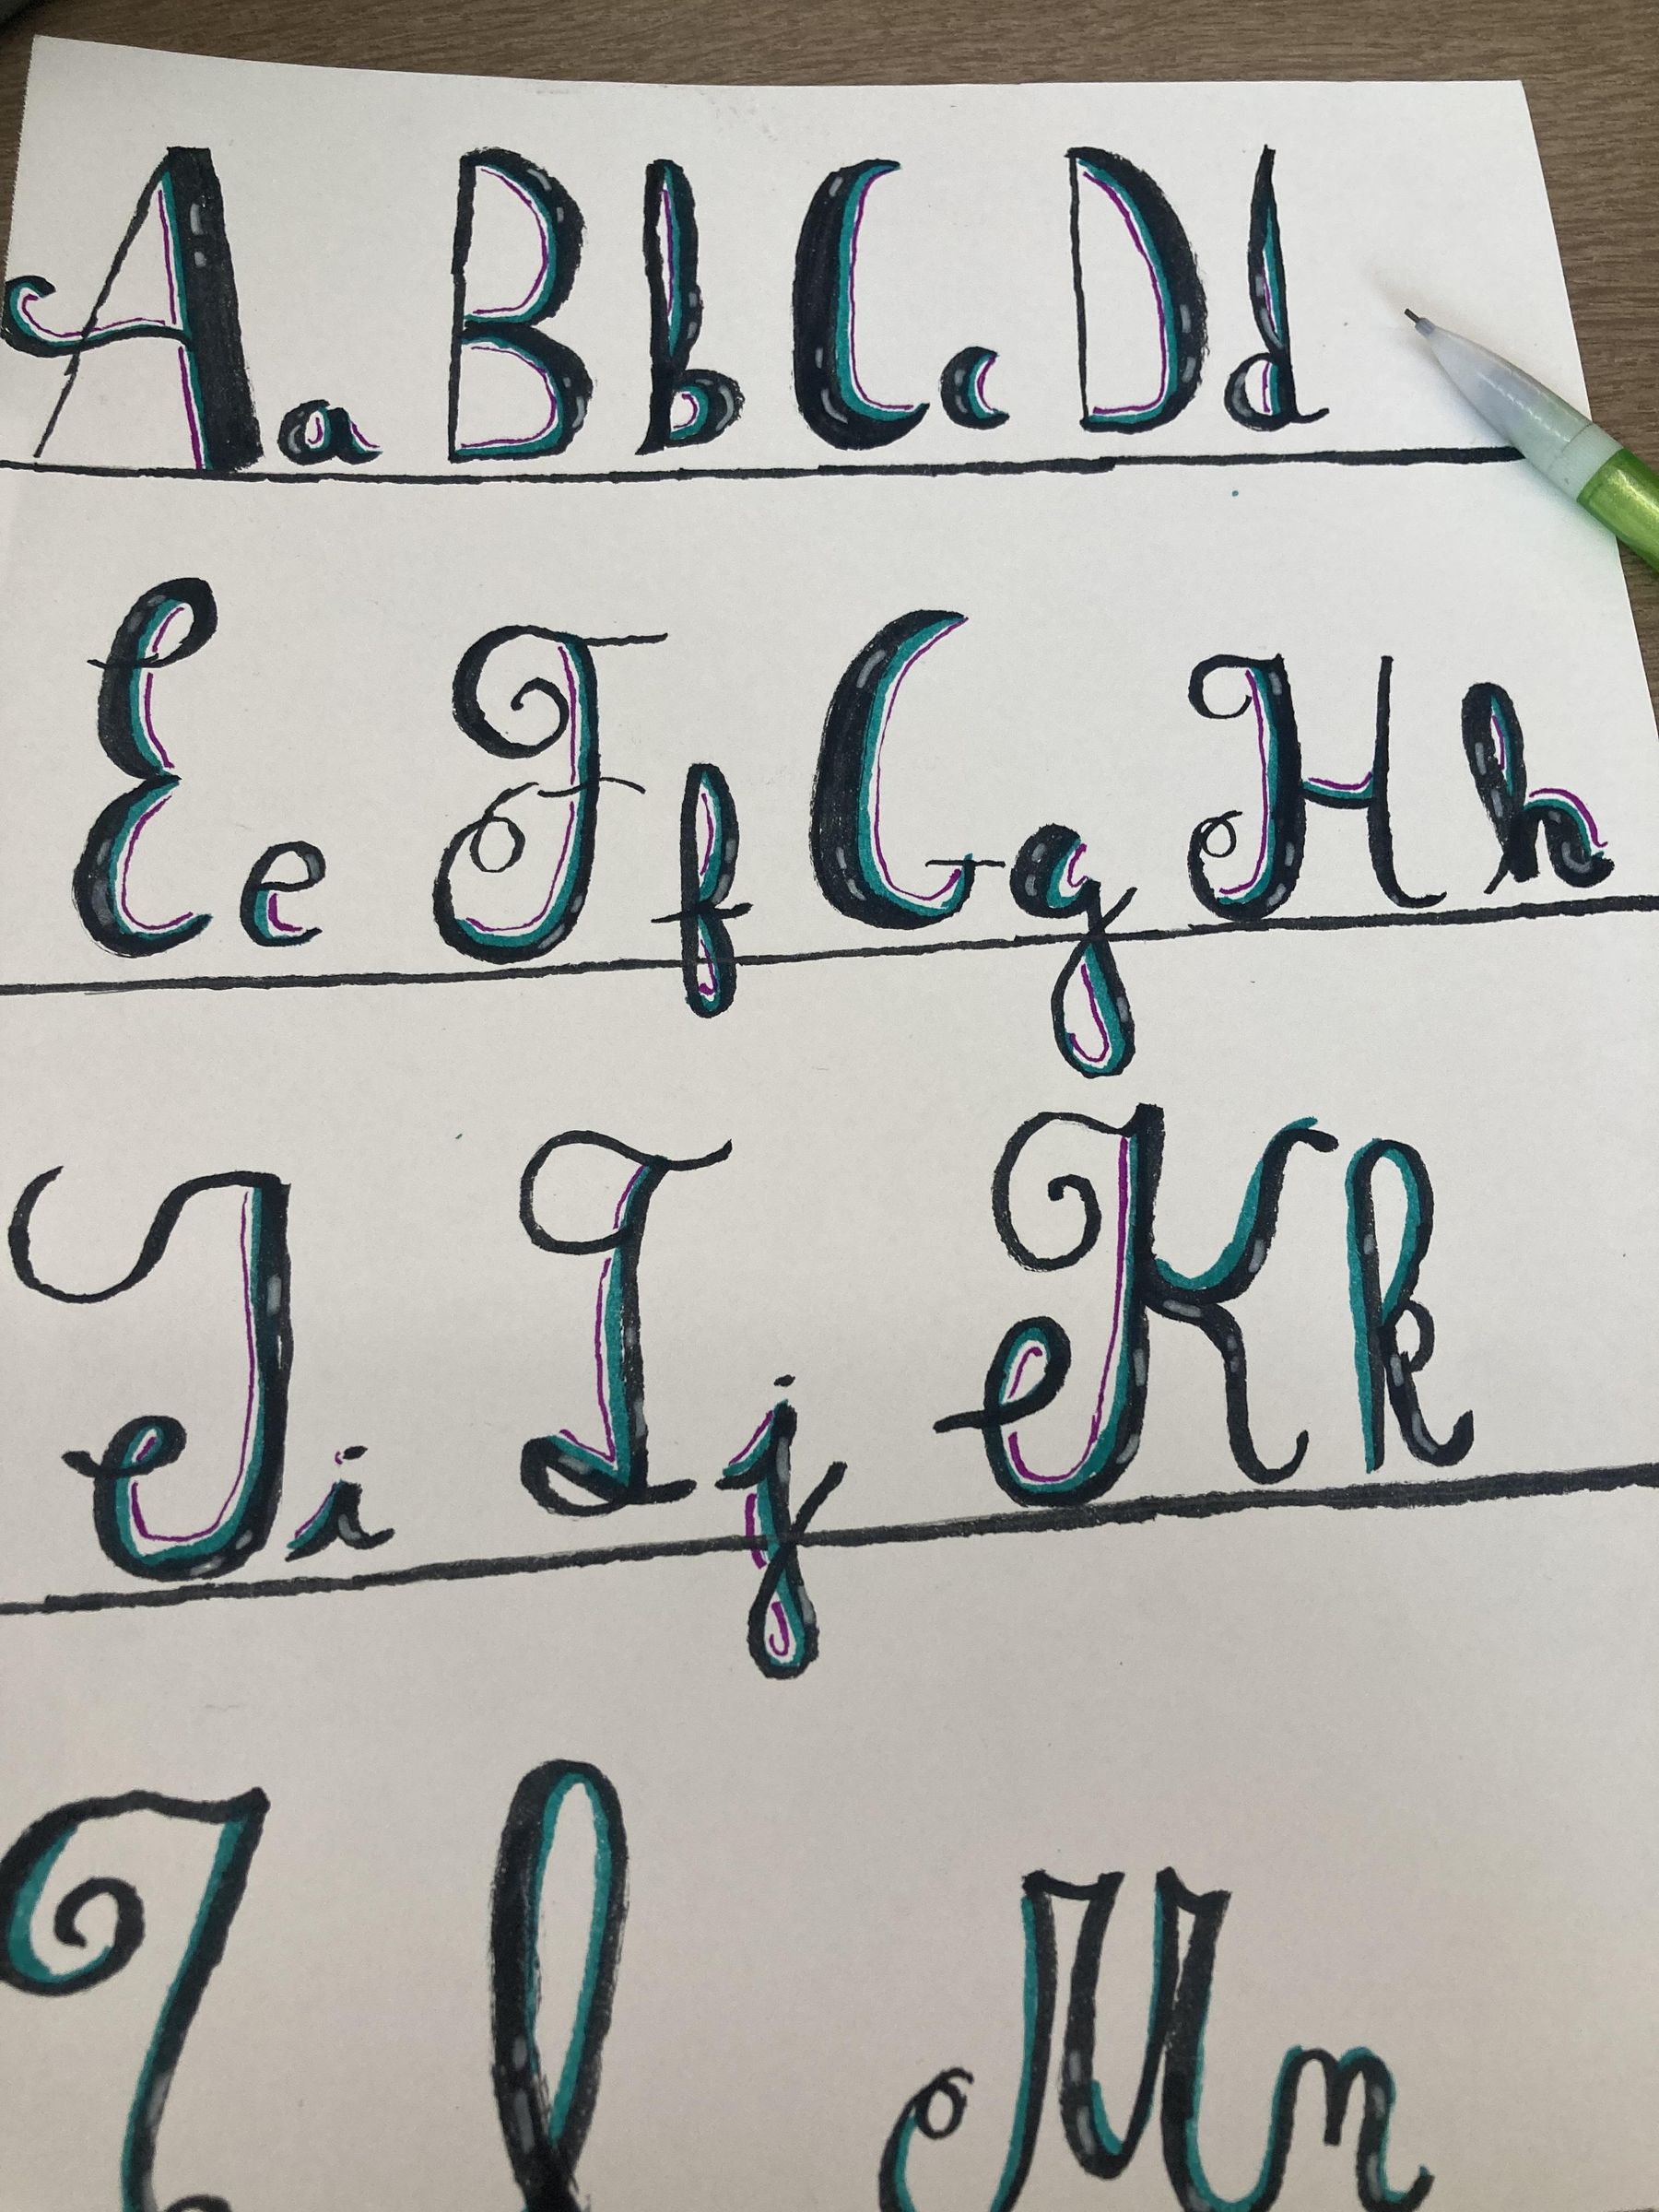 A a B b C c D d
E e F f G g H h
I i J j K k
L l M m